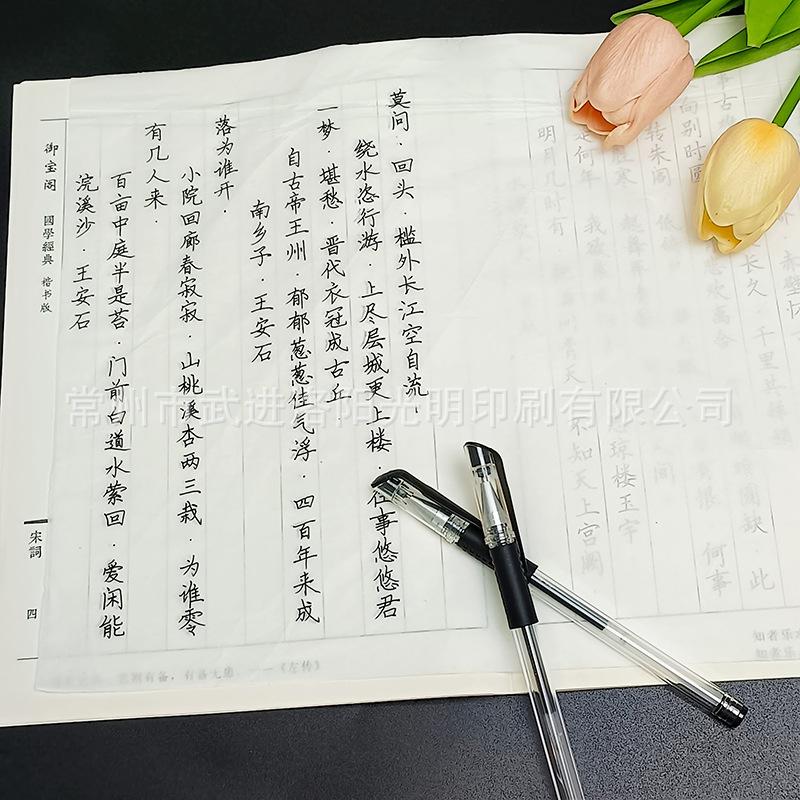 御宝阁 國學經典 楷书版
宋詞
四
浣溪沙·王安石
百亩中庭半是苔·门前白道水萦回·爱闲能
有几人来·
小院回廊春寂寂·山桃溪杏两三栽·为谁零
落为谁开·
南乡子·王安石
自古帝王州·郁郁葱葱佳气浮·四百年来成
一梦·堪愁·晋代衣冠成古丘·
绕水恣行游·上尽层城更上楼·往事悠悠君
莫问·回头·槛外长江空自流·
明月几时有 青天 不知天上宫阙
是何年 我欲 琼楼玉宇
寒 起舞 人间
转朱阁
向别时圆 有恨 何事
事古 悲欢离合 圆缺 此
长久·千里共婵娟
赤壁怀
有备，有备无患。——《左传》
知者乐水
知者乐水
常州市武进洛阳光明印刷有限公司